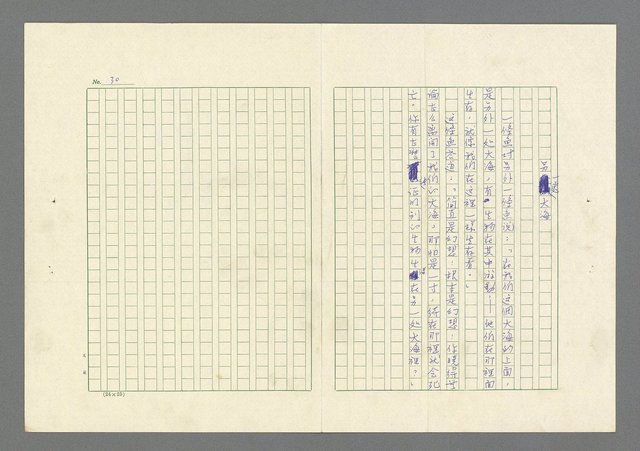 No. 30
另一處大海
一條魚對另外一條魚說：「在我們這個大海的上面，
是另外一处大海，有生物在其中游動——他们在那裡面
生存，就像我們在這裡一樣生存着。」
这條魚答道：「簡直是幻想！根本是幻想！你曉得無
論在么离開了我們的大海，那怕是一寸，待在那裡就会死
亡。你有甚麼証明別的生物生活在另一处大海裡？」
(24×25)